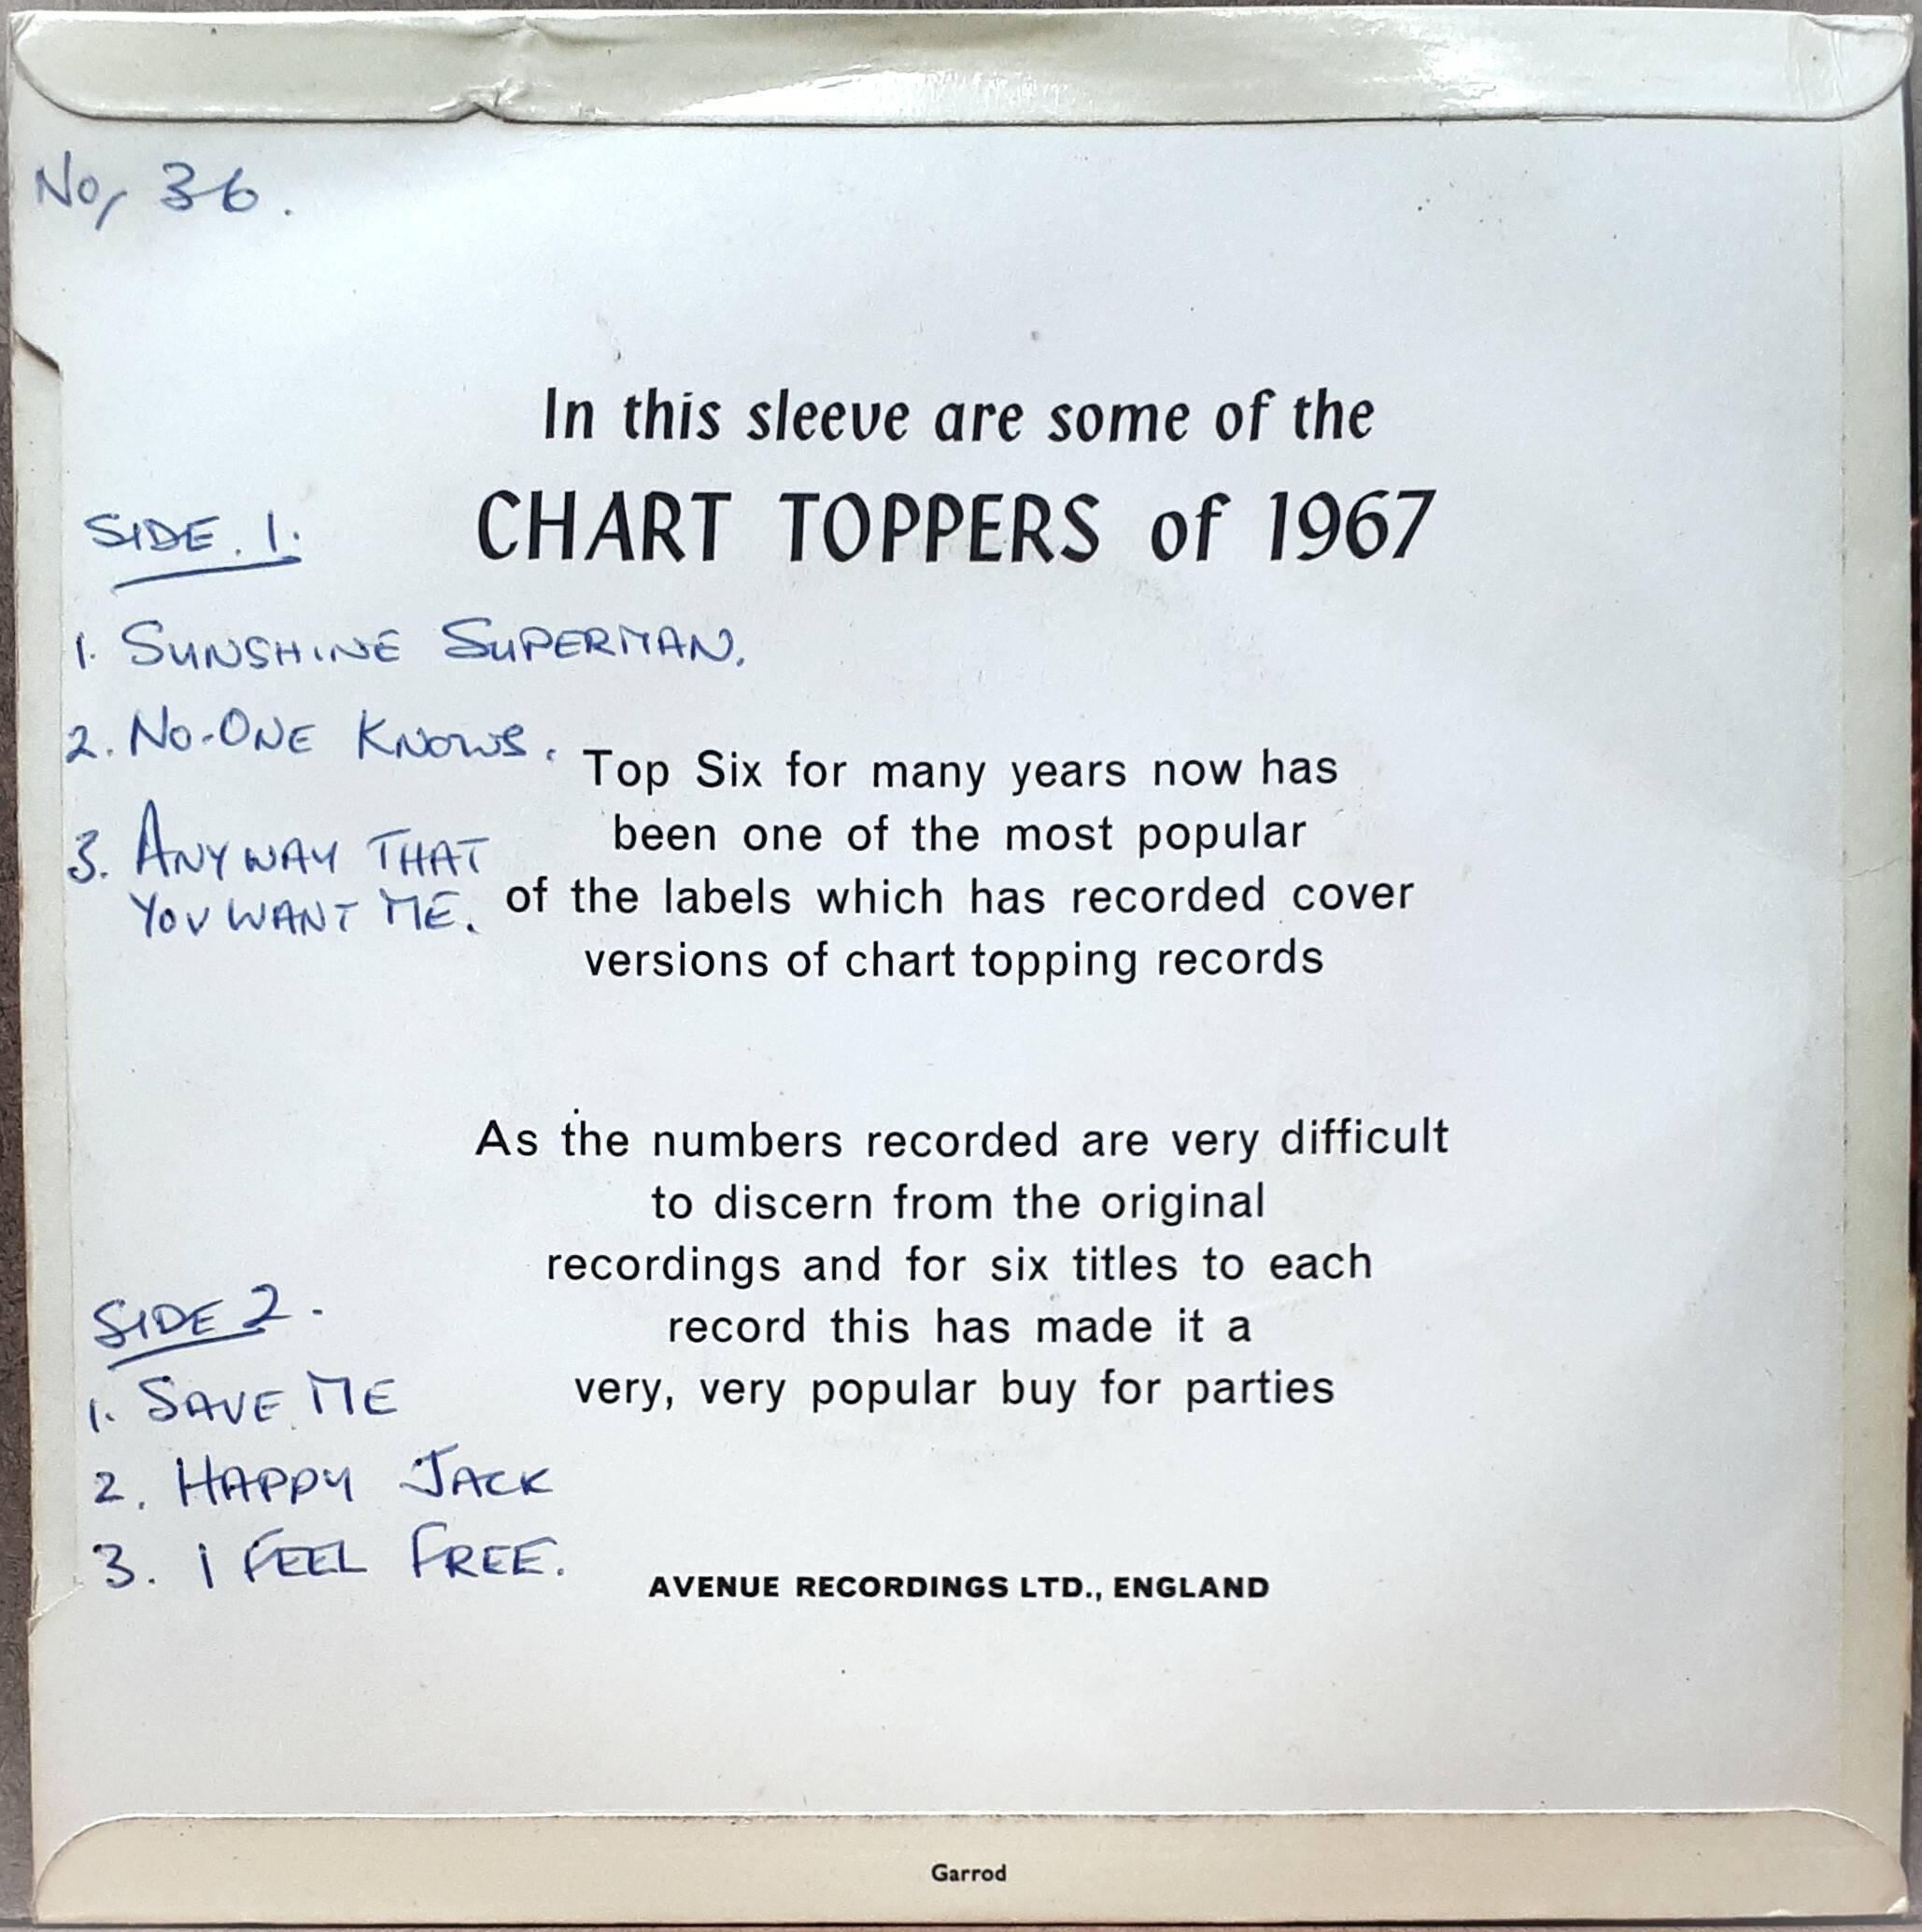 No, 36.
In this sleeve are some of the
CHART TOPPERS of 1967
SIDE. 1.
1. SUNSHINE SUPERMAN.
2. NO-ONE KNOWS.
3. ANYWAY THAT
YOU WANT ME.
Top Six for many years now has
been one of the most popular
of the labels which has recorded cover
versions of chart topping records
As the numbers recorded are very difficult
to discern from the original
recordings and for six titles to each
record this has made it a
very, very popular buy for parties
SIDE 2.
1. SAVE ME
2. HAPPY JACK
3. I FEEL FREE.
AVENUE RECORDINGS LTD., ENGLAND
Garrod